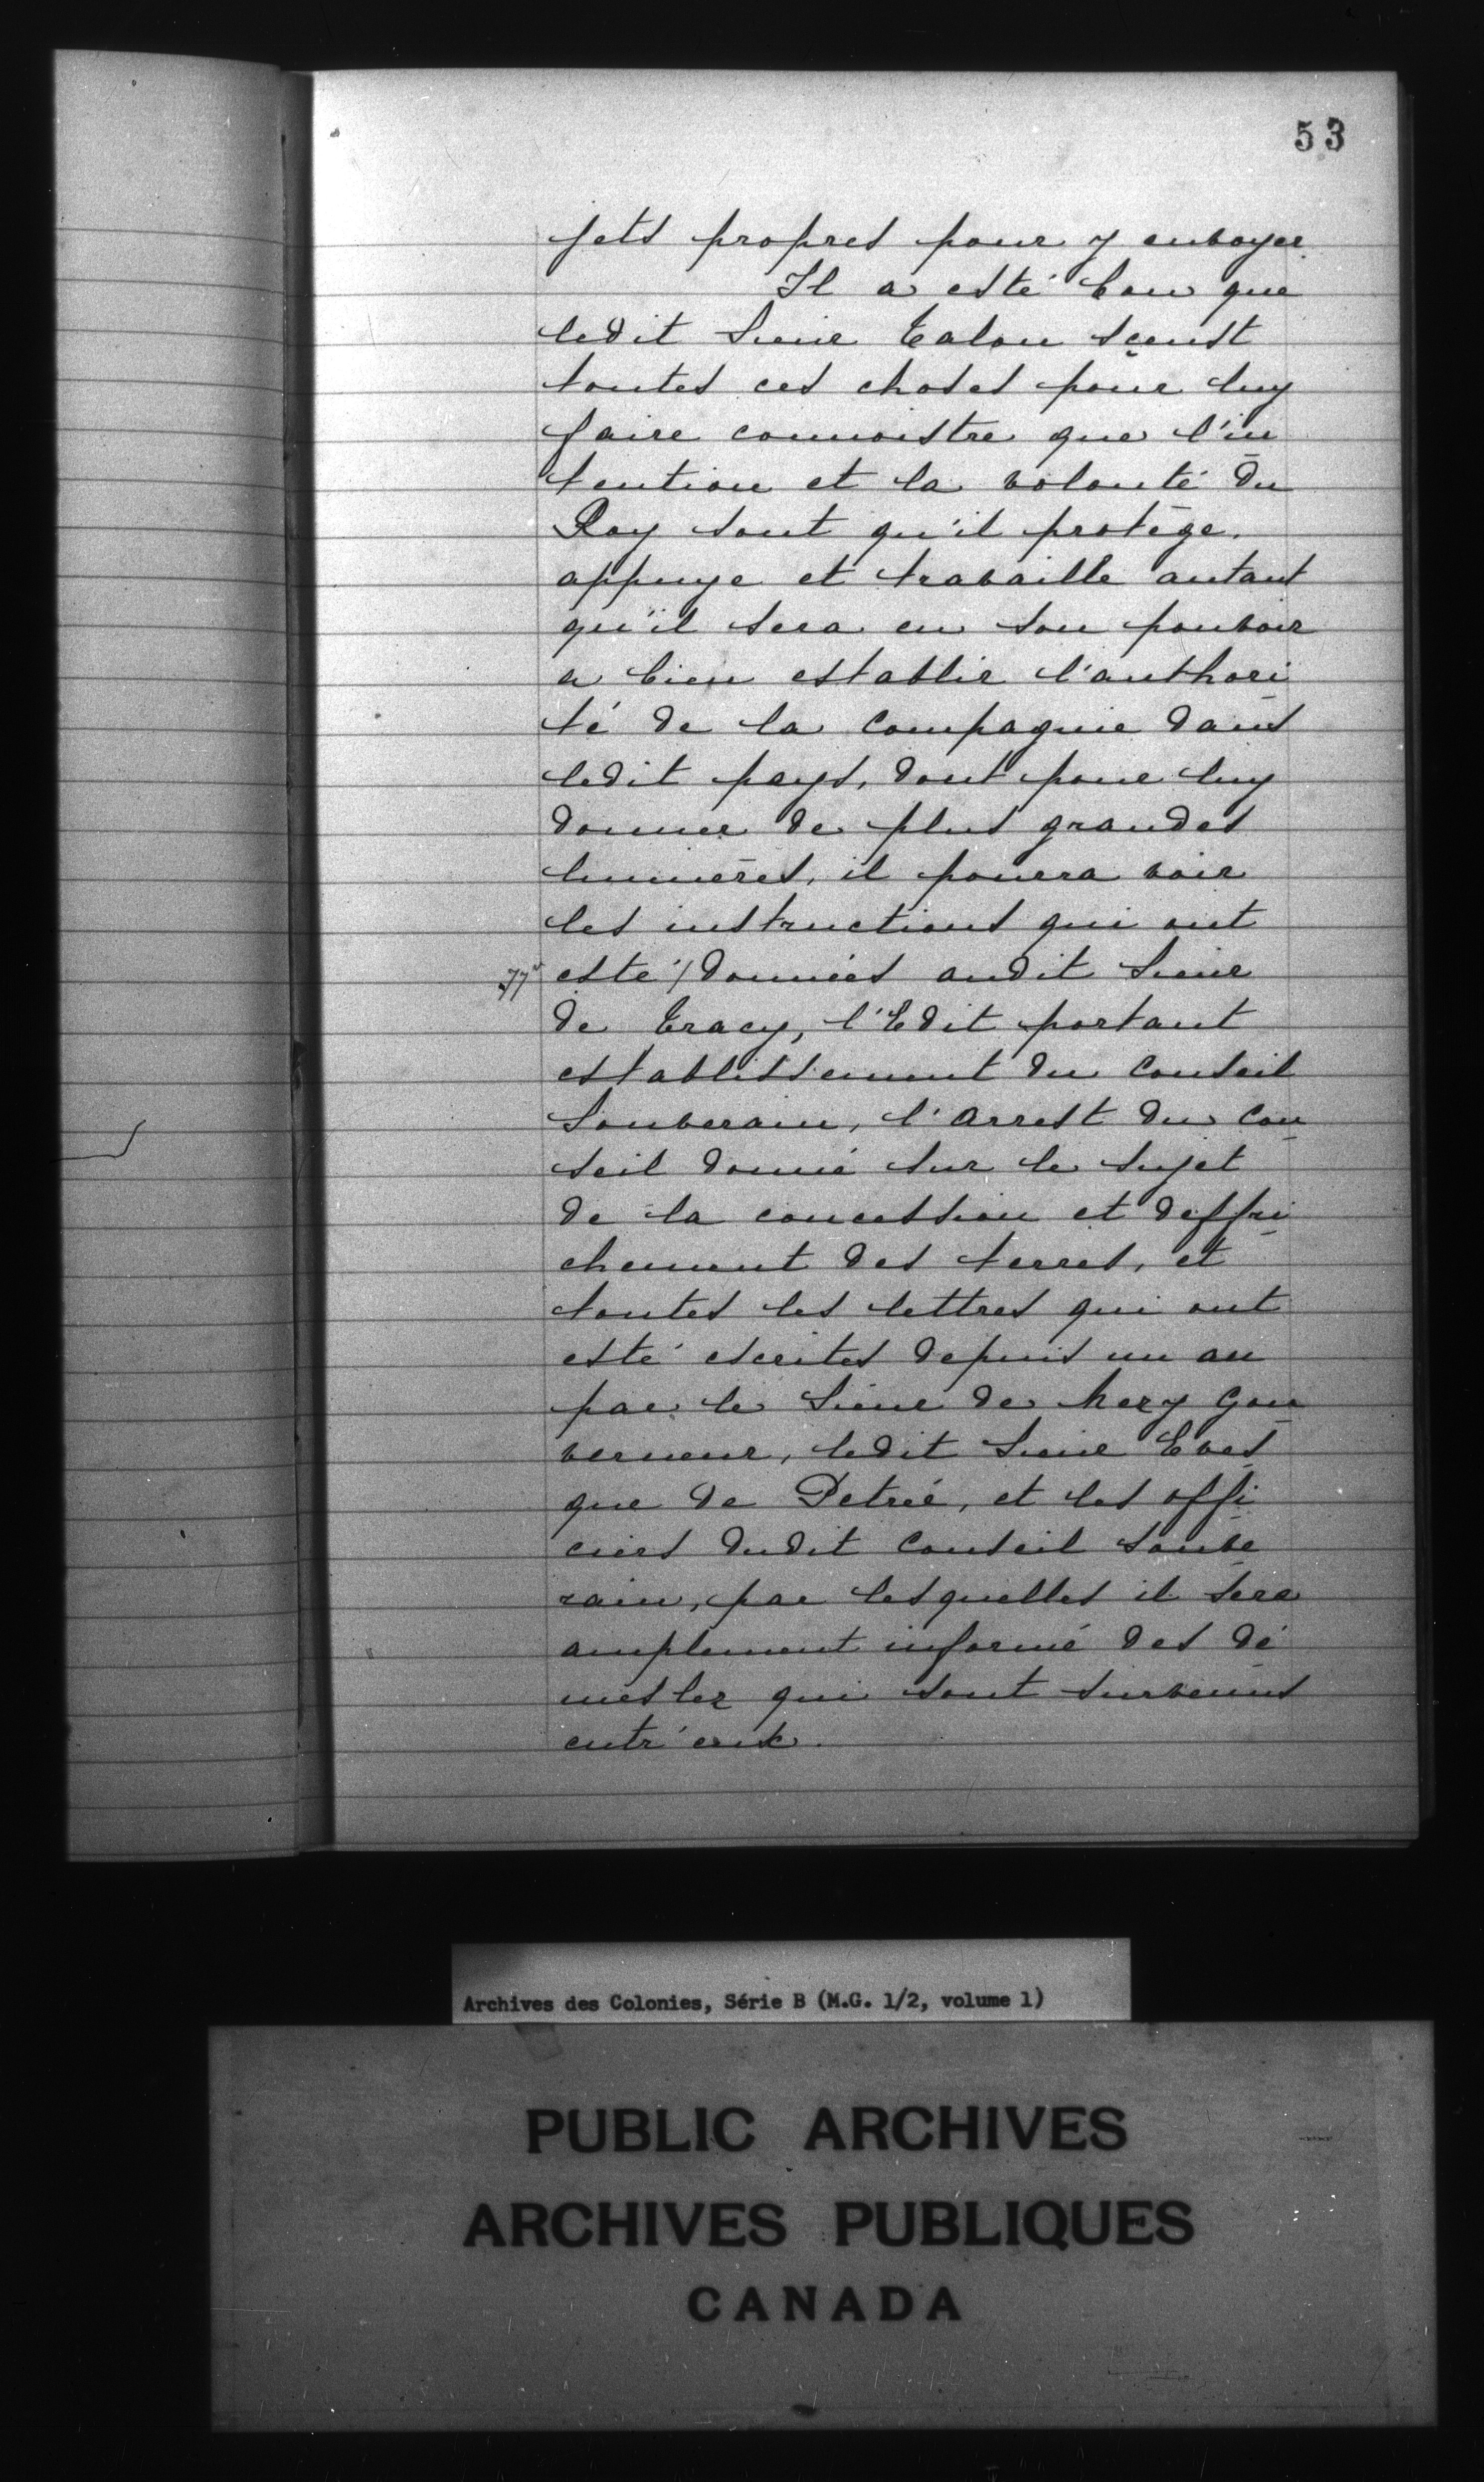 53
jets propres pour y envoyer.
Il a esté bon que
ledit Sieur Talon sçeust
toutes ces choses pour luy
faire connoistre que l'in
tention et la volonté du
Roy sont qu'il protège,
appuye et travaille autant
qu'il sera en son pouvoir
a bien establir l'authori
té de la Compagnie dans
ledit pays, dont pour luy
donner de plus grandes
lumières, il pourra voir
les instructions qui ont
77v esté / données audit Sieur
de Tracy, l'Edit portant
establissement du Conseil
Souverain, l'Arrest du Con
seil donné sur le sujet
de la concession et deffri
chement des terres, et
toutes les lettres qui ont
esté escrites depuis un an
par le Sieur de Mezy Gou
verneur, ledit Sieur Eves
que de Petrée, et les offi
ciers dudit Conseil Souve
rain, par lesquelles il sera
amplement informé des dé
meslez qui sont survenus
entr'eux.
Archives des Colonies, Série B (M.G. 1/2, volume 1)
PUBLIC ARCHIVES
ARCHIVES PUBLIQUES
CANADA